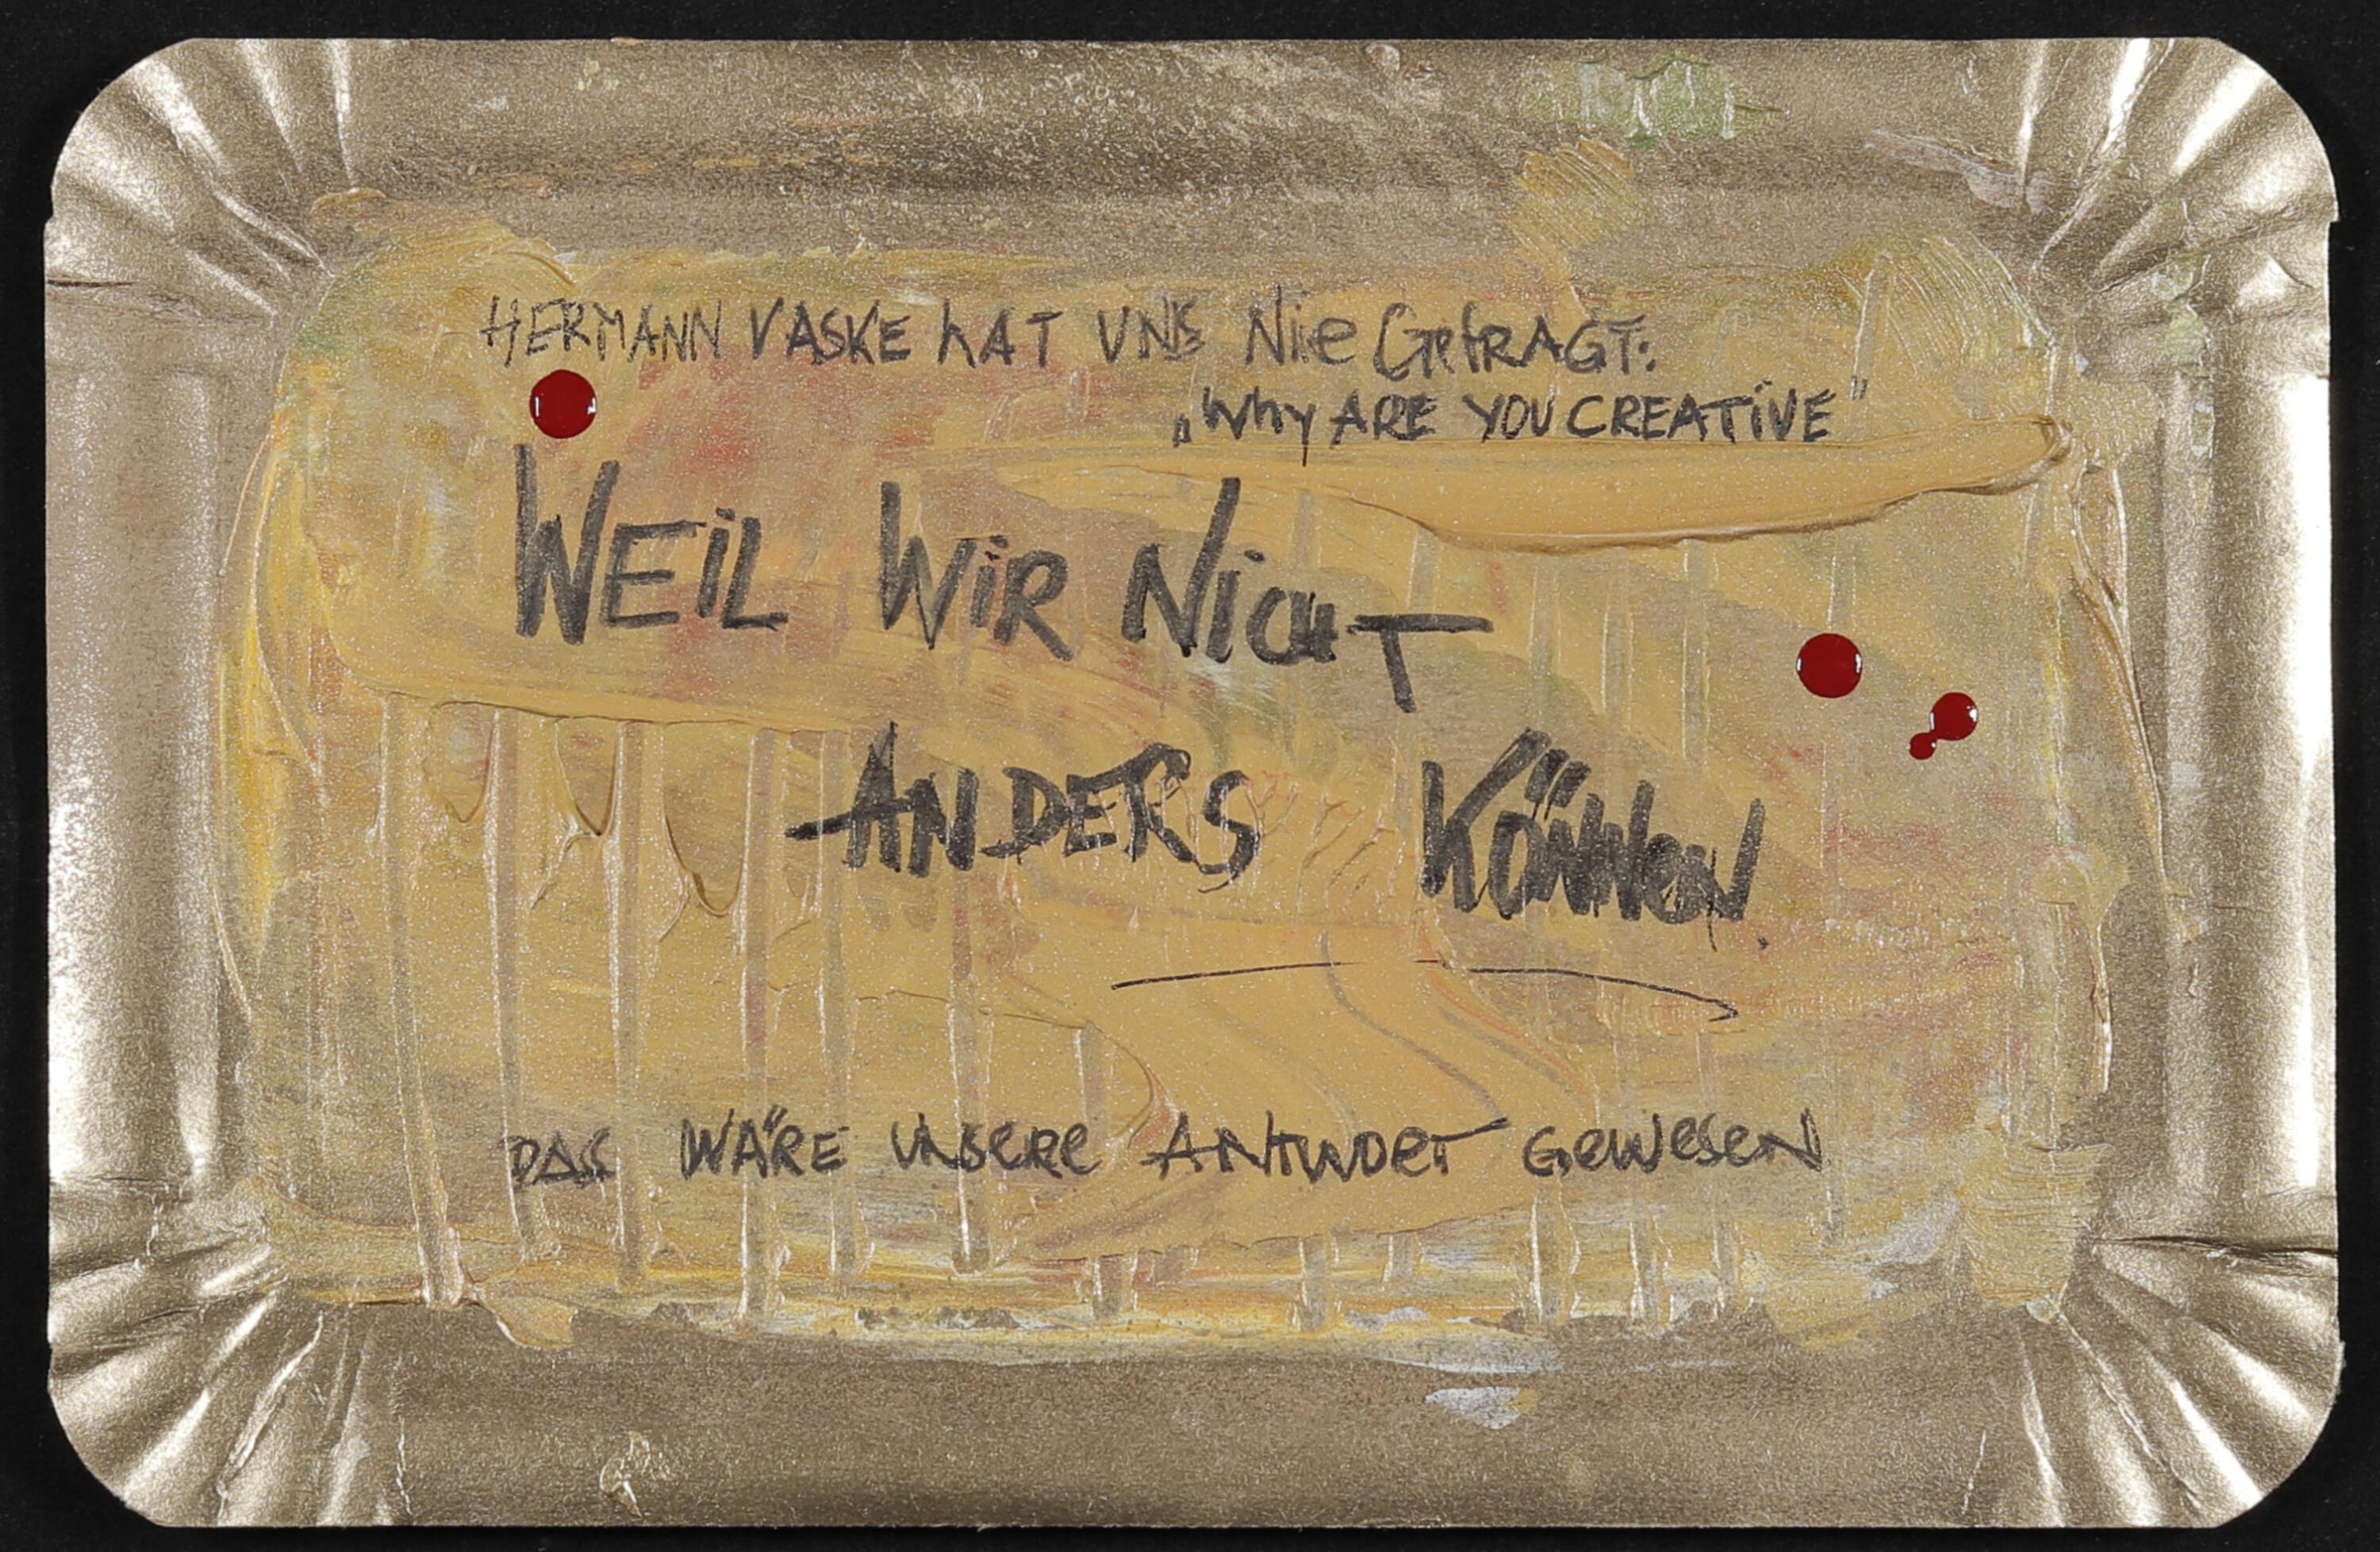 HERMANN VASKE hAT UNS Nie GefRAGT:
„Why ARE YOU CREATiVE"
WEiL WiR NicHT
ANDERS KÖNNeN.
DAS WÄRE UNSeRe ANtWORT GeWeSeN